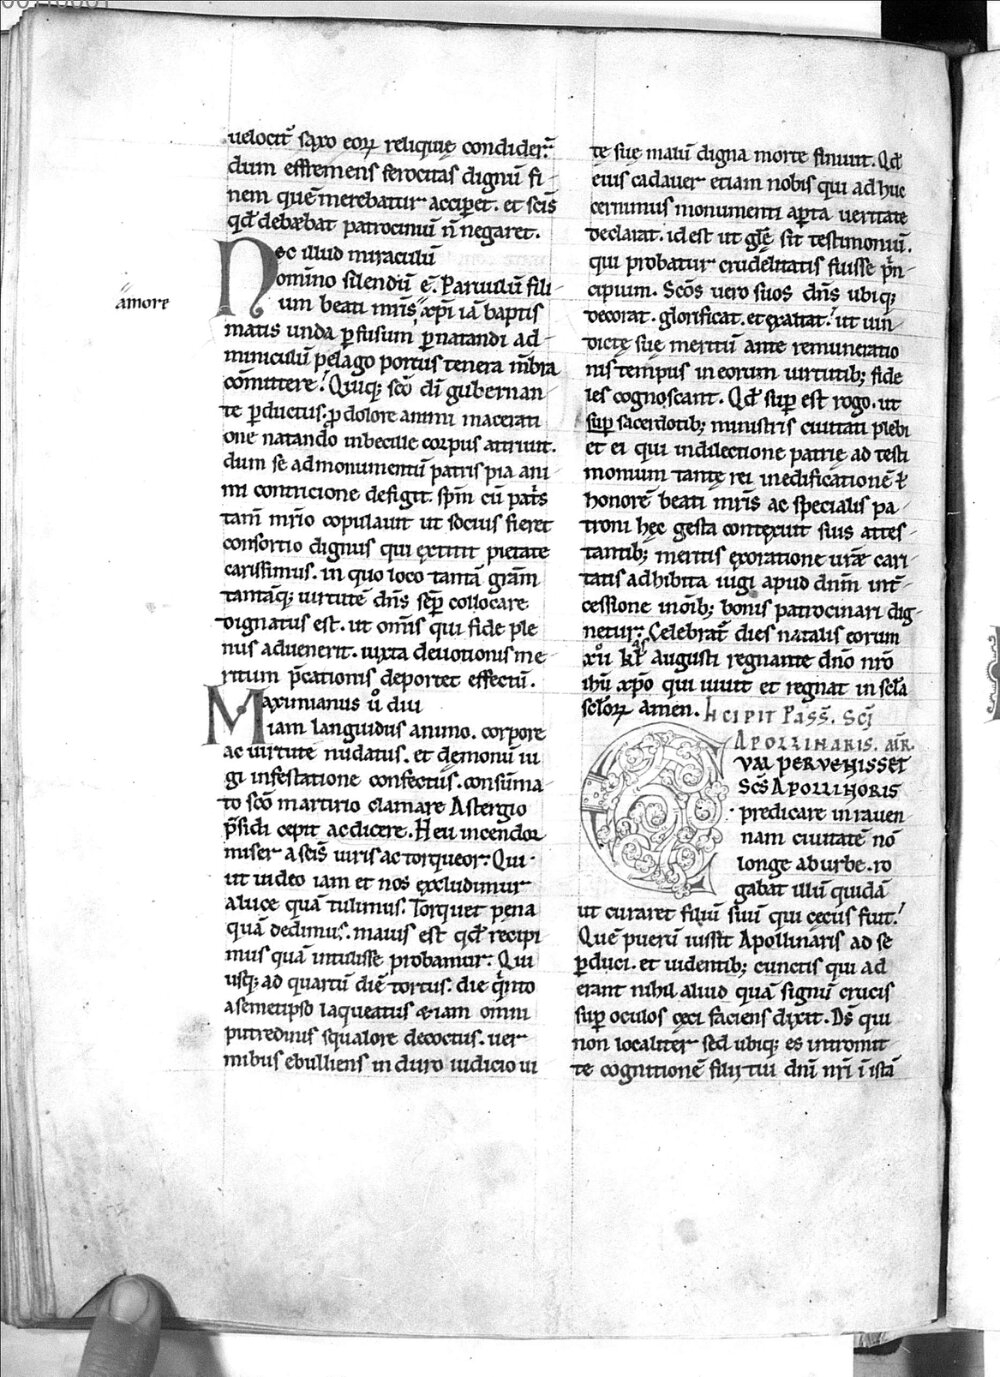 uelocit᷑ saxo eoꝝ reliquię condider᷑.
dum effremens ferocitas dignū fi-
nem quē merebatur acciperet. et scīs
qđ debebat patrociniū n̄ negaret.
Nec illud miraculū
omīno silendū ē. Paruulū fili-
um beati mr̄is xp̄i iā baptis
amore
matis unda ꝑfusum ꝑnatandi ad-
miniculū pelago portus tenera mēbra
cōmittere. Quiq; sc̄o dī gubernan-
te ꝑductus, p̱ dolore animi macerati
one natando inbecille corpus attriuit.
dum se ad monumentū patris pia ani-
mi contricione defigit. sp̄m cū patr̄s
tam̄ mr̄io copulauit ut socius fieret
consortio dignus qui extitit pietate
carissimus. in quo loco tantā gr̄am
tantāq; uirtutē dn̄s semꝑ collocare
dignatus est. ut om̄is qui fide ple
nus aduenerit. iuxta deuotionis me-
ritum p̄cationis deportet effectū.
Maximianus u̇ diu
iam languidus animo. corpore
ac uirtute nudatus. et demonū iu
gi infestatione confectus. consūma-
to sc̄o martirio clamare Astergio
p̄sidi cepit ac dicere. Heu incendor
miser a scīs uiris ac torqueor. Qui
ut uideo iam et nos excludimur
a luce quā tulimus. Torquet pena
quā dedimus. mauis est qđ recipi
mus quā intulisse probamur. Qui
usq; ad quartū diē tortus. die q̇nto
a semetipso laqueatus etiam omni
putredinis squalore decoctus. uer-
mibus ebulliens in duro iudicio ui
te suę malū digna morte finiuit. Qđ
eius cadauer etiam nobis qui adhuc
cernimus monumenti aꝑta ueritate
declarat. id est ut glę sit testimoniū.
qui probatur crudelitatis fuisse ṗn-
cipium. Sc̄os uero suos dn̄s ubiq;
decorat. glorificat. et exaltat. ut uin-
dictę suę meritū ante remuneratio
nis tempus in eorum uirtutib; fide
les cognoscant. Qđ suꝑ est rogo. ut
suꝑ sacerdotib; ministris ciuitati plebi
et ei qui in dilectione patrię ad testi
monium tantę rei in edificationē ł
honorē beati mr̄is ac specialis pa-
troni hęc gesta contexuit suis attes-
tantib; meritis exoratione urę̄ cari
tatis adhibita iugi apud dn̄m int̄-
cessione in oīb; bonis patrocinari dig-
netur. Celebrat᷑ dies natalis eorum
xv̇ kl̄ augusti regnante dn̄o nr̄o
ihū xp̄o qui uiuit et regnat in scl̄a
scl̄oꝝ amen. Incipit Pass̄. Scī
Apollinaris. mr̄.
Cum pervenisset
Scs̄ Apollinaris
predicare in rauen
nam ciuitatē nō
longe ab urbe. ro
gabat illū quidā
ut curaret filiū suū qui cecus fuit.
Quē puerū iussit Apollinaris ad se
ꝑduci. et uidentib; cunctis qui ad
erant nihil aliud quā signū crucis
suꝑ oculos ceci faciens dixit. Ds̄ qui
non localiter sed ubiq; es intromit
te cognitionē filij tui dn̄i nr̄i ī istā